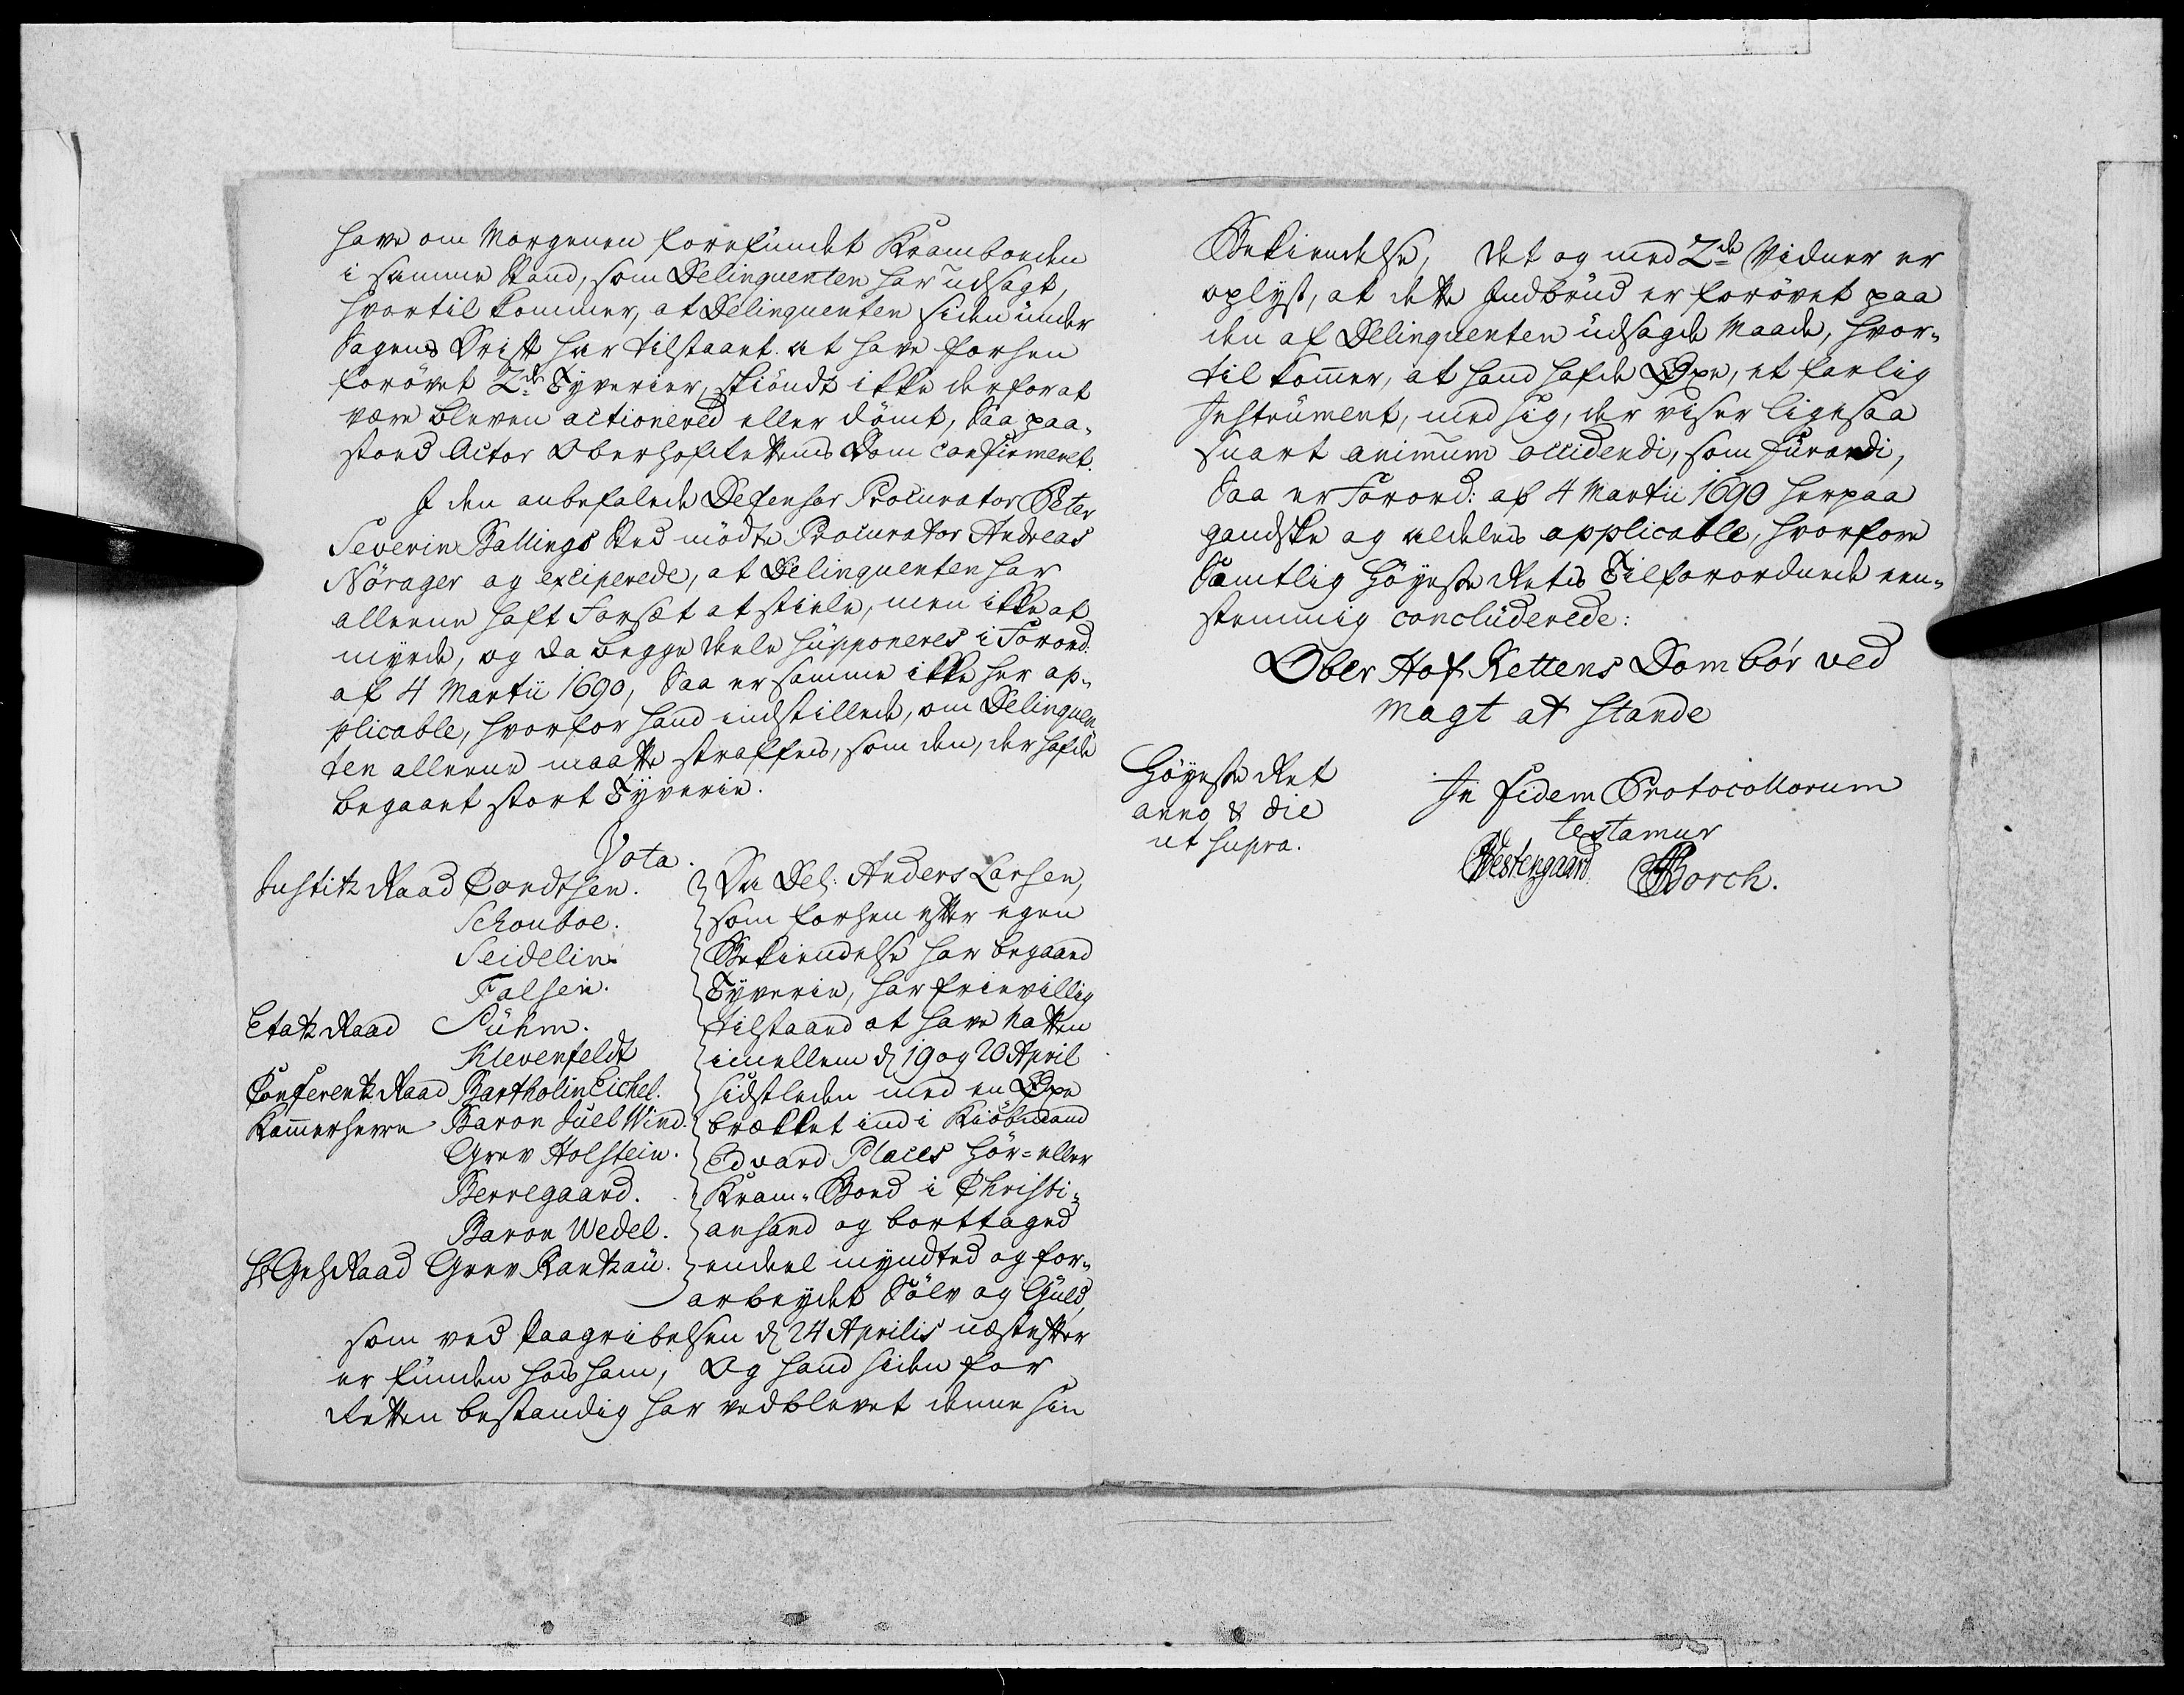 have om Morgenen forefundet Kramboeden
i samme Stand, som Delinquenten har udsagt,
hvortil kommer, at Delinquenten siden under
Sagens Drift har tilstaaet at have forhen
forøvet 2de Tyverier, skiøndt ikke derfor at
være bleven actionered eller dömt, Saa paa-
stoed Actor Oberhofrettens Dom confirmeret.
I den anbefalede Defensor Procurator Peter
Severin Ballings Sted mödte Procurator Andreas
Nörager og exciperede, at Delinquenten har
alleene haft Forsæt at stiele, men ikke at
myrde, og da begge Deele supponeres i Forord:
af 4 Martii 1690, Saa er samme ikke her ap-
plicable, hvorfor hand indstillede, om Delinquen
ten alleene maatte straffes, som den, der hafde
begaaet stort Tyverie.
Vota.
Justitz Raad Cordtsen.
Schouboe.
Seidelin.
Falsen.
Etatz Raad Suhm.
Klevenfeldt
Conferentz Raad Bartholin Eichel.
Kammerherre Baron Juel Wind.
Grev Holstein.
Berregaard.
Baron Wedel.
H Geh Raad Grev Rantzau.
Da Del: Anders Larsen,
som forhen efter egen
Bekiendelse har begaaed
Tyverie, har frievillig
tilstaaed at have Natten
imellem d 19 og 20 April
sidstleden med en Øxe
brækket ind i Kiöbmand
Edvard Places Hör- eller
Kram-Boed i Christi-
ansand og borttaged
endeel myndted og for-
arbeydet Sölv og Guld,
som ved Paagribelsen d 24 Aprilis næstefter
er funden hos ham, Og hand siden for
Retten bestandig har vedblevet denne sin
Bekiendelse, Det og med 2de Vidner er
oplyst, at dette Indbrud er forövet paa
den af Delinquenten udsagde Maade, hvor-
til kommer, at hand hafde Øxe, et farlig
Instrument, med sig, der viser ligesaa
snart animum occidendi, som furandi,
Saa er Forord: af 4 Martii 1690 herpaa
gandske og aldeles applicable, hvorfore
Samtlig Höyeste Retts Tilforordnede een-
stemmig concluderede:
Ober Hof Rettens Dom bör ved
Magt at stande
Höyeste Ret
anno & die
ut supra.
In fidem Protocollorum
testamur
Westengaard. Borch.